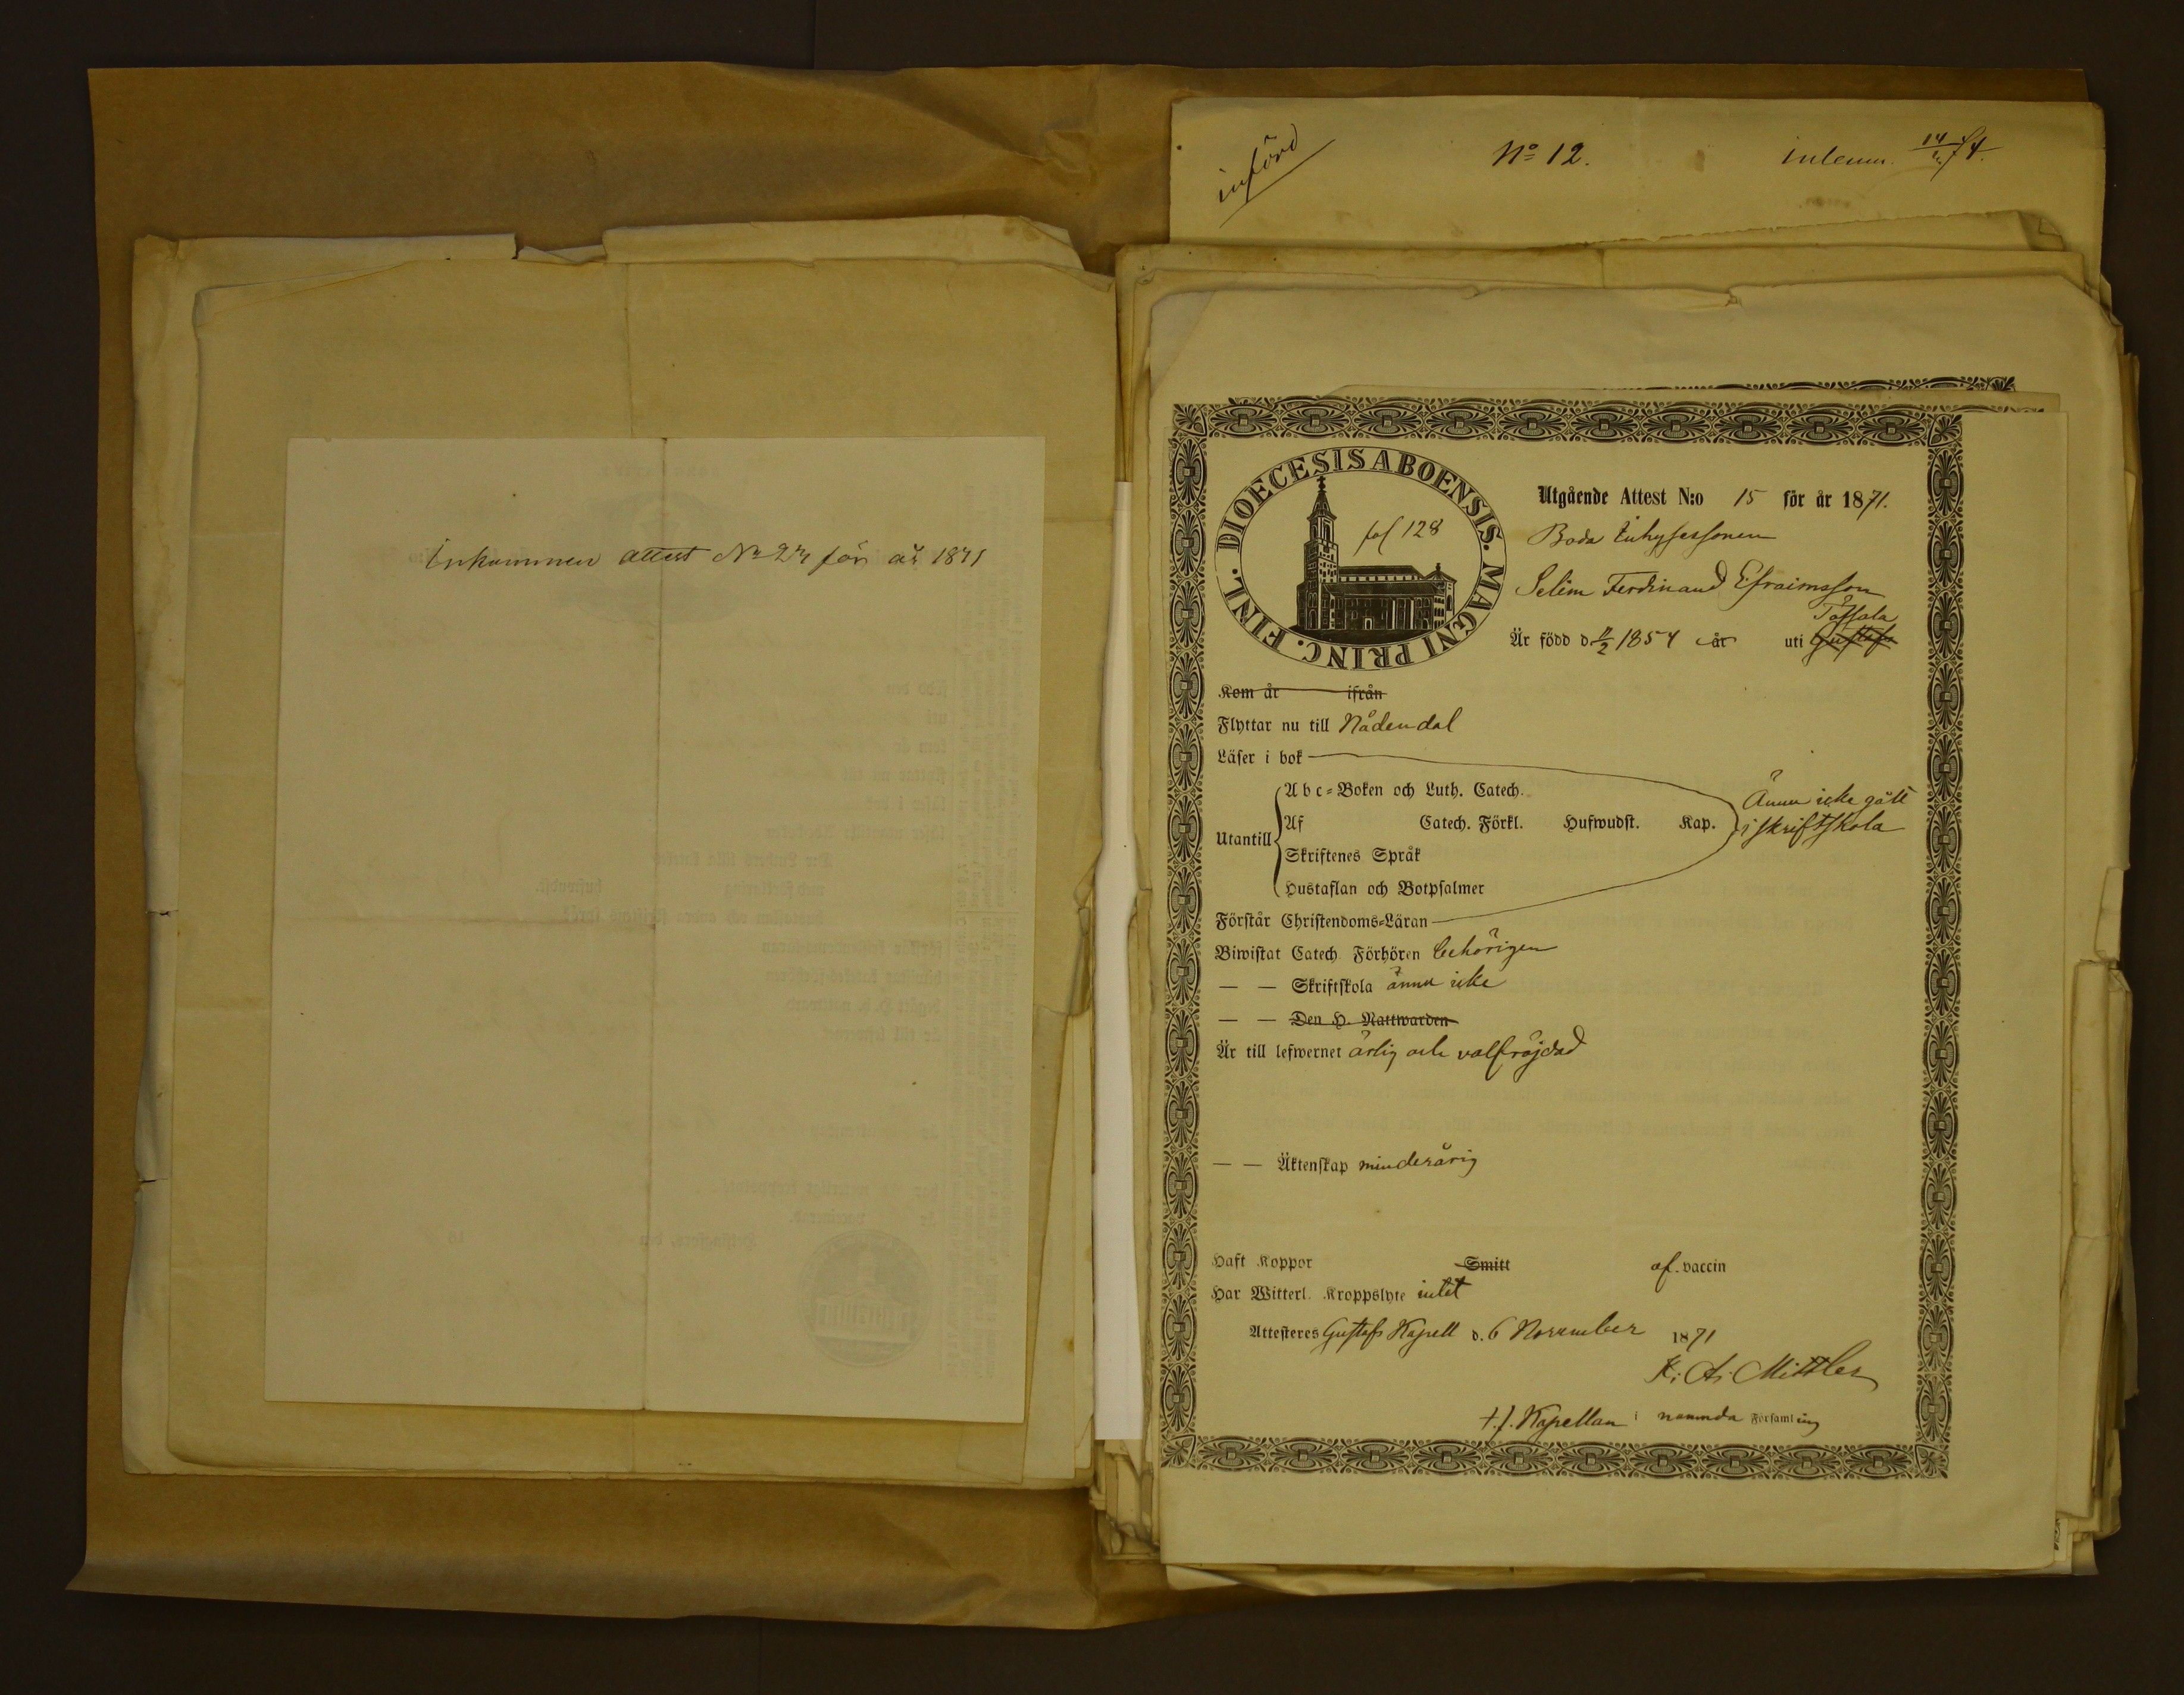 Inkommen attest No 27 för år 1871
införd
No 12.
inlemn. 14/2 74.
DIOECESIS ABOENSIS. MAGNI PRINC. FINL.
fol 128
Utgående Attest N:o 15 för år 1871.
Boda Inhysessonen
Selim Ferdinand Efraimsson
Töfsala
Är född d. 11/2 1854 år uti Gustafs
Kom år ifrån
Flyttar nu till Nådendal
Läser i bok
Abc-Boken och Luth. Catech.
Ännu icke gått
Utantill Af Catech. Förkl. Hufwudst. Kap. i skriftskola
Skriftenes Språk
Hustaflan och Botpsalmer
Förstår Christendoms-Läran
Biwistat Catech. Förhören behörigen
— — Skriftskola ännu icke
— — Den H. Nattwarden
Är till lefwernet ärlig och välfräjdad
— — Äktenskap minderårig
Haft Koppor Smitt af vaccin
Har Witterl. Kroppslyte intet
Attesteres Gustafs Kapell d. 6 November 1871
K. A. Mittler
t.f. Kapellan i namnda Församling